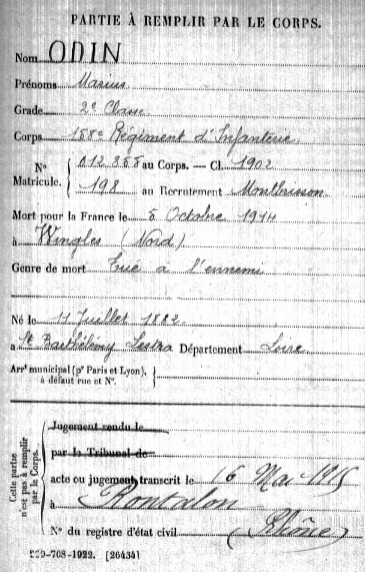 PARTIE À REMPLIR PAR LE CORPS.
Nom ODIN
Prénoms Marius
Grade 2e Classe
Corps 158e Régiment d'Infanterie
N° Matricule. { 012.355 au Corps. — Cl. 1902
198 au Recrutement Montbrison
Mort pour la France le 5 Octobre 1914
à Wingles (Nord)
Genre de mort Tué à l'ennemi
Né le 11 Juillet 1882
à St Barthélemy Lestra Département Loire
Arrt municipal (pr Paris et Lyon), à défaut rue et N°.
Cette partie n'est pas à remplir par le Corps.
Jugement rendu le
par le Tribunal de
acte ou jugement transcrit le 16 Mai 1915
à Rontalon
N° du registre d'état civil (Rhône)
539-708-1922. [26434]